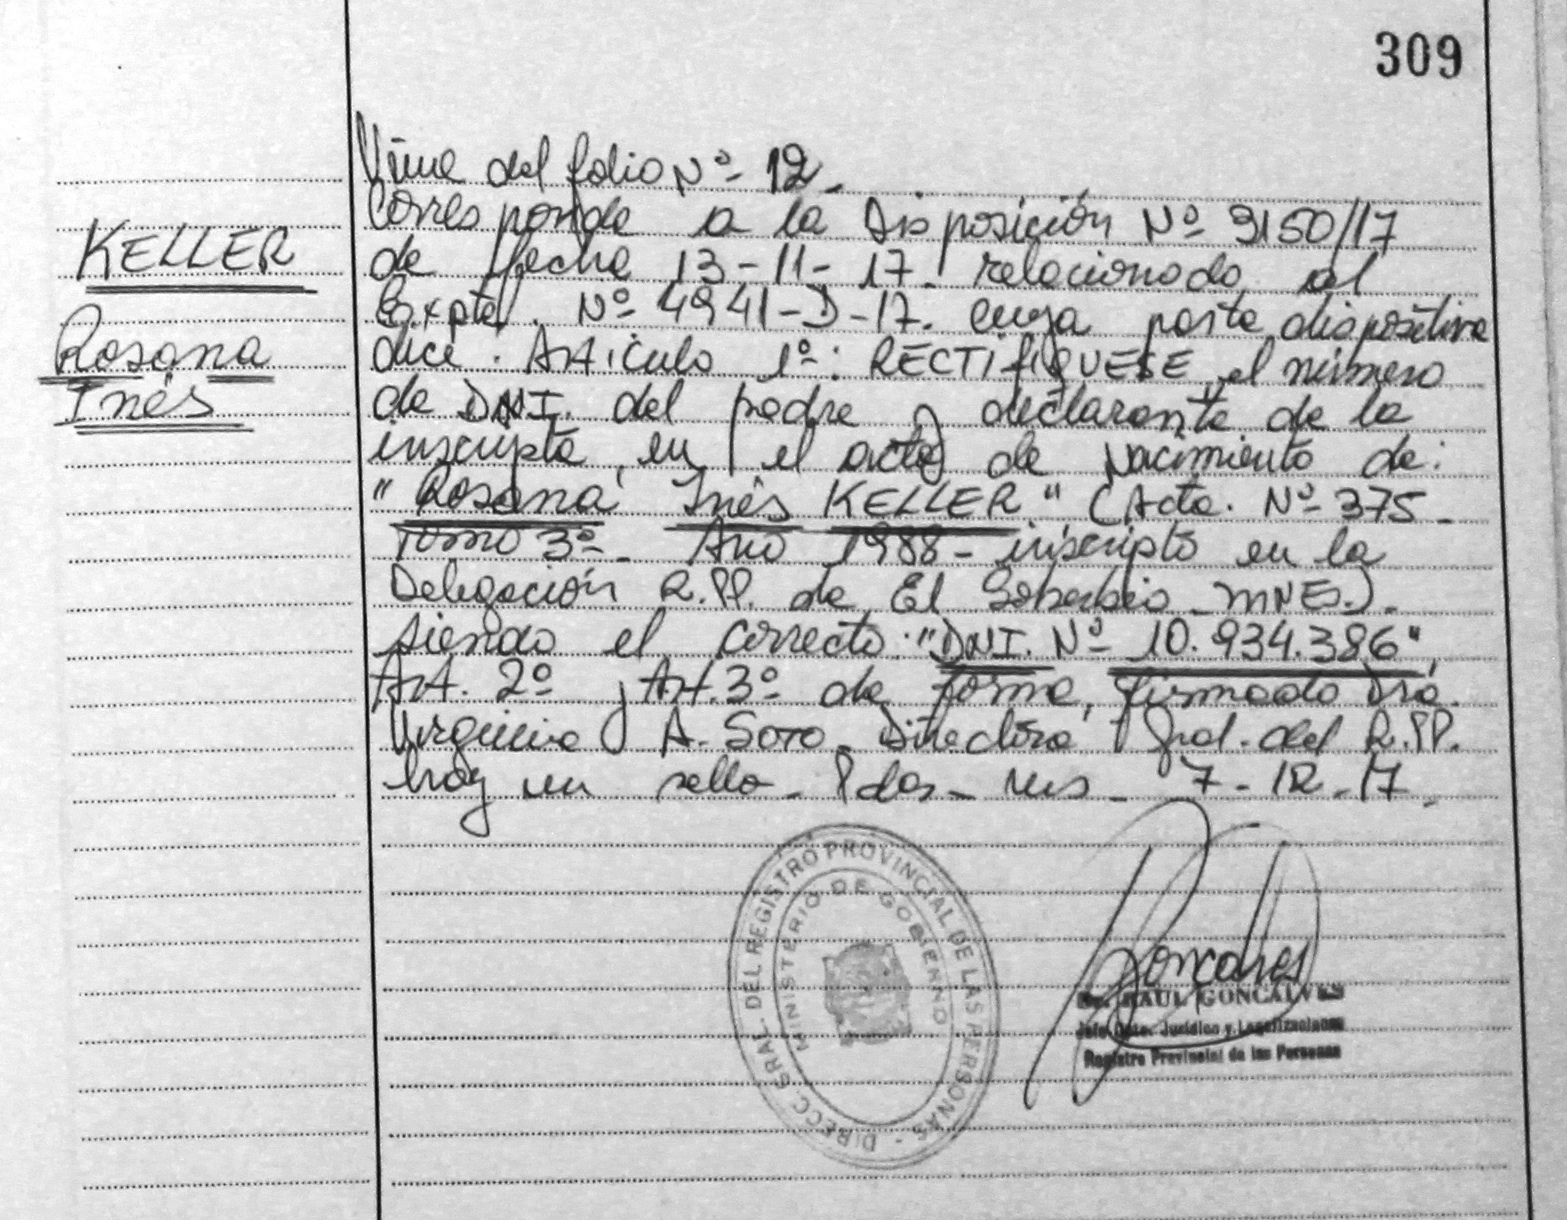 309
KELLER
Rosana
Inés
Viene del folio Nº 12.
Corresponde a la Disposición Nº 3150/17
de fecha 13-11-17. relacionado al
Expte. Nº 4941-D-17. cuya parte dispositiva
dice: Artículo 1º: RECTIFIQUESE, el número
de DNI. del padre y declarante de la
inscripta, en el acta de Nacimiento de:
"Rosana Inés KELLER" (Acta. Nº 375-
Tomo 3º- Año 1988- inscripto en la
Delegación R.PP. de El Soberbio-MNES.).
siendo el correcto: "DNI. Nº 10.934.386"
Art. 2º y Art. 3º de forma, firmado Dra.
Virginia A. Soto. Directora Gral. del R.PP.
hay un sello- Pdas- Mns- 7-12-17.
DIRECC. GRAL. DEL REGISTRO PROVINCIAL DE LAS PERSONAS -
MINISTERIO DE GOBIERNO
Goncalves
RAUL GONCALVES
Jefe Dpto. Jurídico y Legalizaciones
Registro Provincial de las Personas